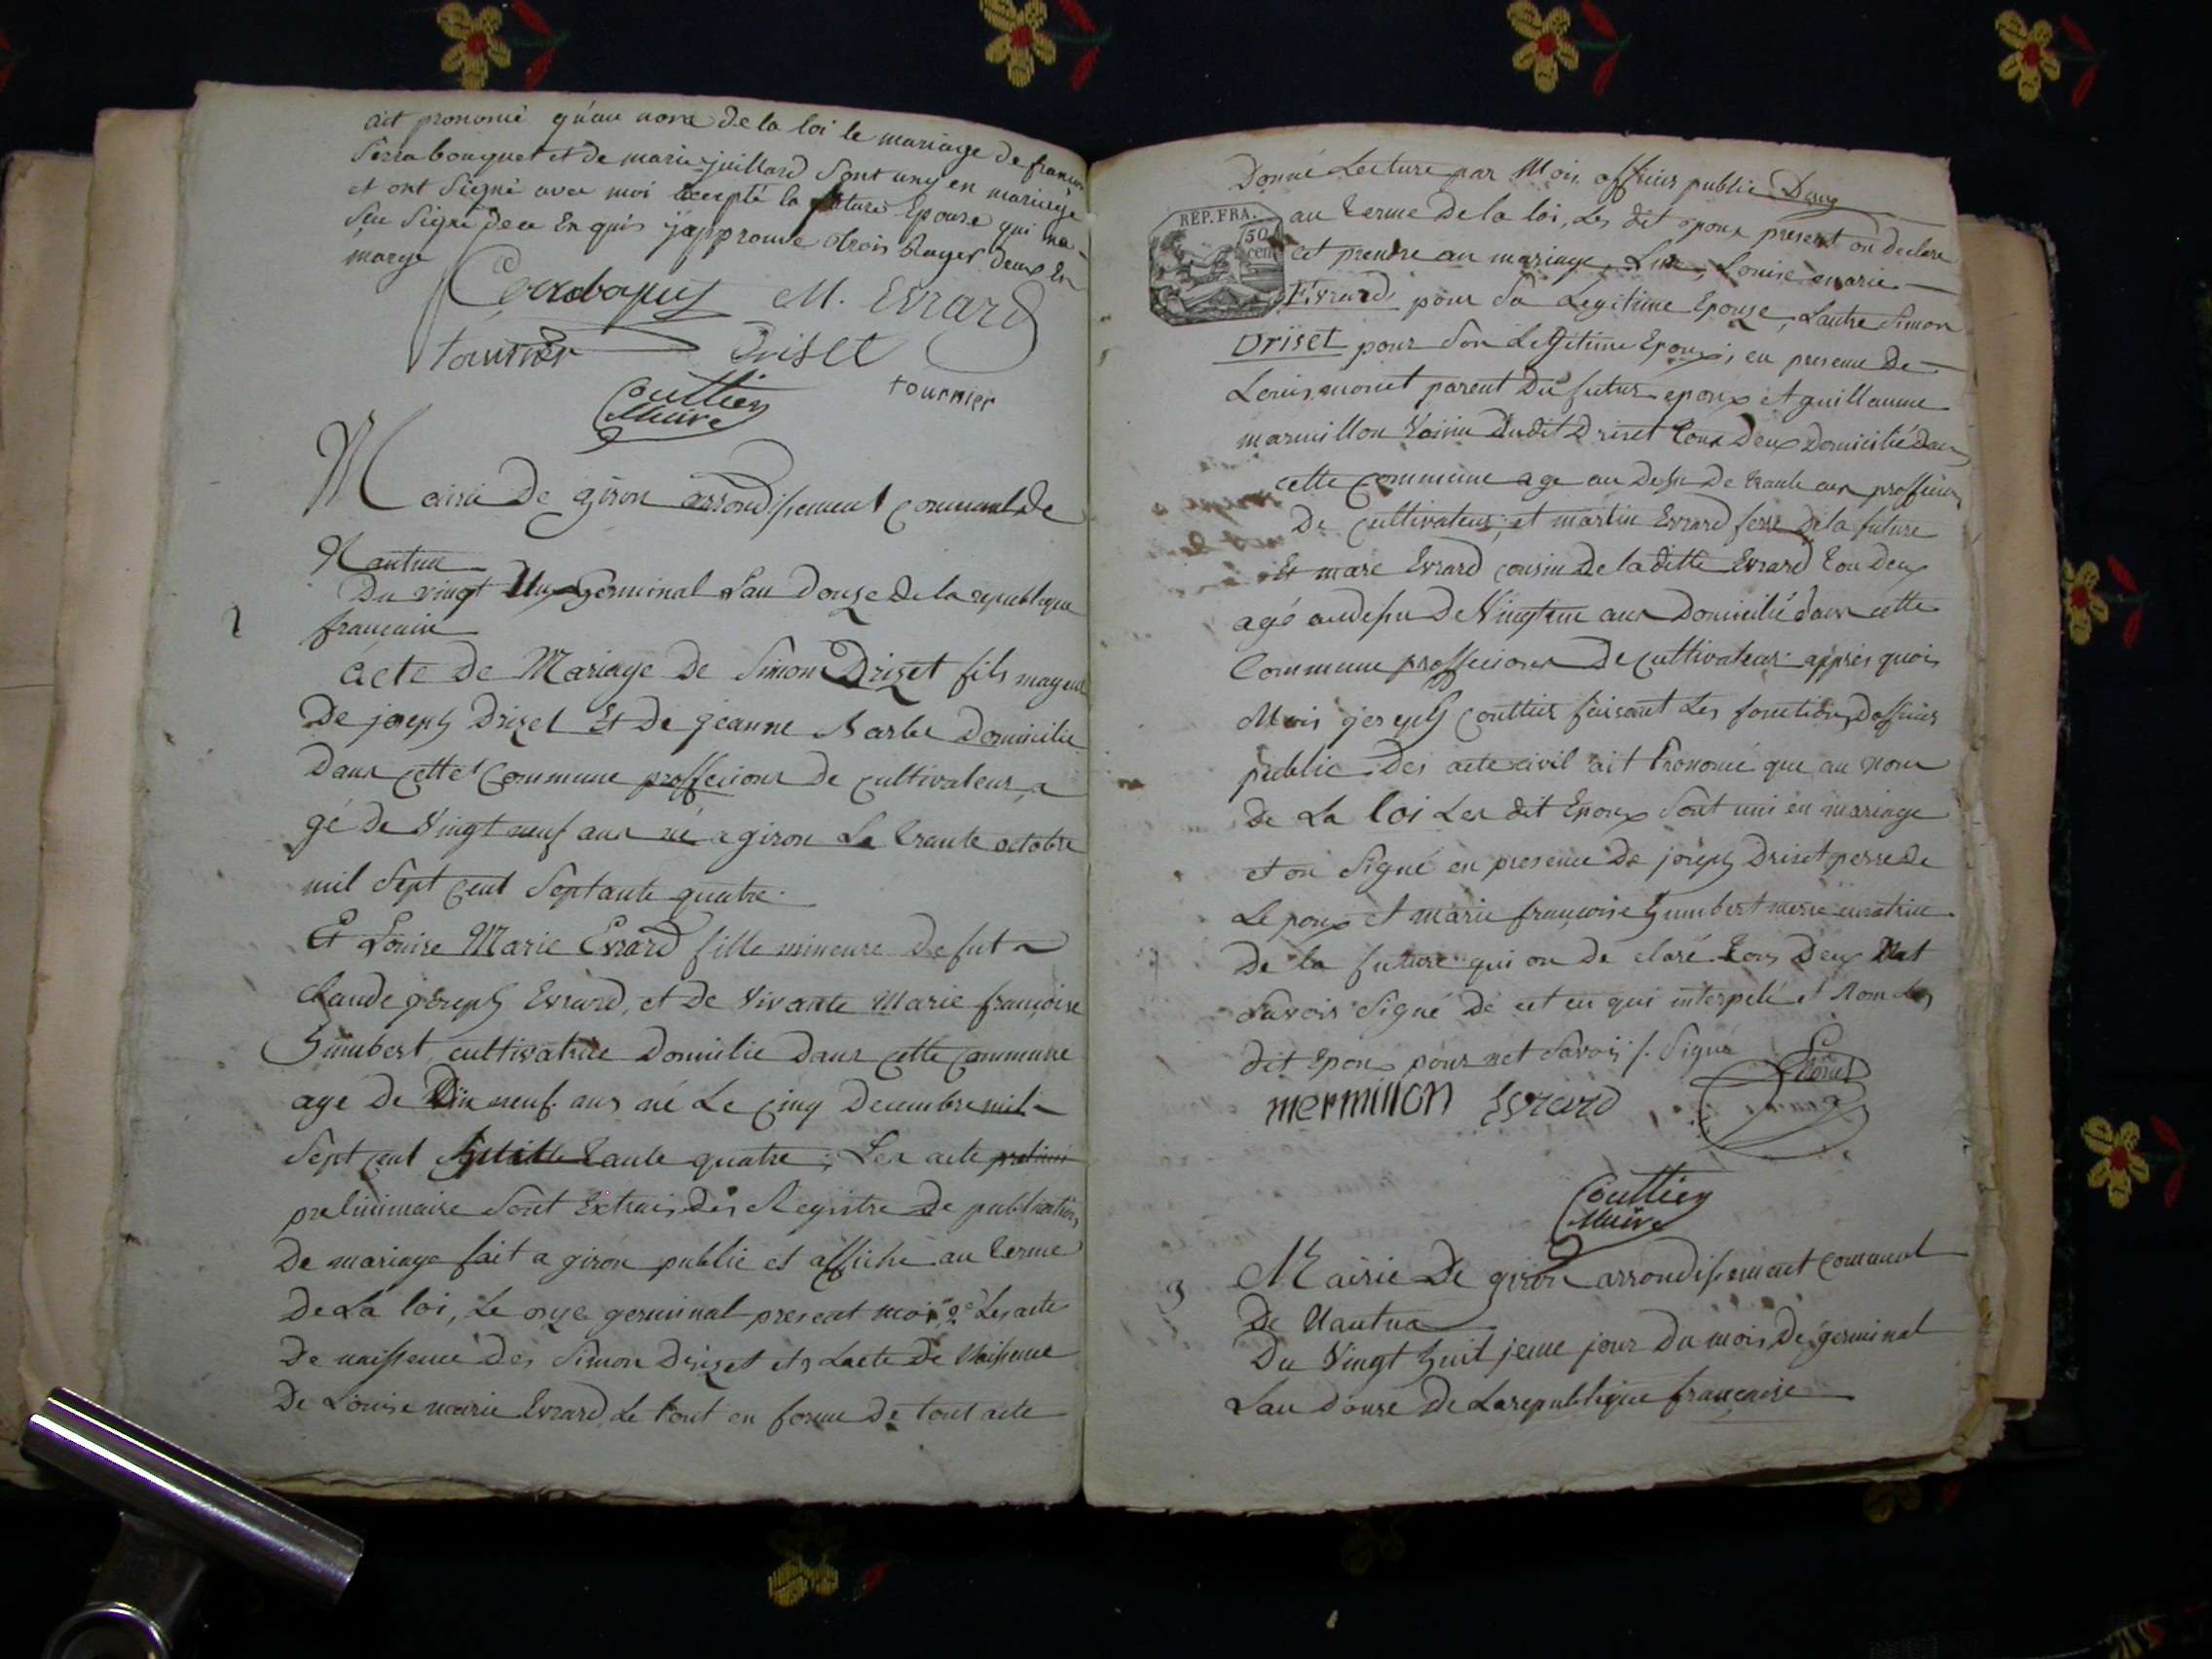 ait prononcé qu'au nom de la loi le mariage de françois
Serra bouquet et de marie juillard Sont uny en mariage
et ont Signé avec moi Excepté la future Epouse qui na
Seu Signé de ce En quis j'approuve trois Rayes deux En
marge
M. Evrard
tournier Driset
tournier
Couttier
Maire
Mairie De giron arrondissement communal de
Nantua
2
Du vingt Un Germinal Lan douze de la republique
francaise
acte de Mariage de Simon Drizet fils mageur
De joseph Drizet Et de jeanne Narbe Domicilie
Dans cette Commune proffecions de cultivateur, a
gé de Vingt neuf ans né a giron Le trante octobre
mil Sept cent Septante quatre.
Et Louise Marie Evrard fille mineure de fut
Claude joseph Evrard, et de Vivante Marie françoise
humbert cultivatrice Domicilie Dans cette commune
agé de Dix neuf ans né Le cinq Decembre mil
Sept cent tante quatre; Les acte prelimi
preliminaire Sont Extrais des Registre de publications
De mariage fait a giron public et affiché au terme
De La loi, Le onze germinal present mois, 2e Les acte
De naissence des Simon Drizet et 3 Lacte De Naissence
De Louise marie Evrard, Le tout en forme de tout acte
Donné Lecture par Mois officies public Dans
REP. FRA.
50
cent
au terme de la loi, Les dit epoux present on declare
et prendre au mariage, Lun, Louise marie
Evrard pour Sa Legitime Epouse, Lautre Simon
Driset pour Son Legitime Epoux, en presence De
Louis monet parent du futur epoux et guillaume
marmillon Voisin dudit Driset tous Deux Domicilié dans
cette commune age au desu de trante ans proffecions
De cultivateur, et martin Evrard frere de la future
Et marc Evrard cousin de la ditte Evrard tou deux
agé audesu de Vingt un ans Domicilié dans cette
Commune proffecions de cultivateur apprés quois
Mois joseph Couttier faisant Les fonctions d'officies
public des acte civil ait Prononcé que au nom
de La loi Les dit Epoux Sont uni en mariage
et on Signé en presence de joseph Driset perre de
Lepoux et marie françoise humbert merre curatrice
de la future qui on de claré tous deux Net
Savoir Signé de cet en qui interpelé et Non Les
dit Epoux pour net Savoir /. Signé
mermillon Evrard Monet
Couttier
Maire
3
Mairie De giron arrondissement communal
De Nantua
Du Vingt huit jeme jour du mois de germinal
Lan douze de La republique francaise